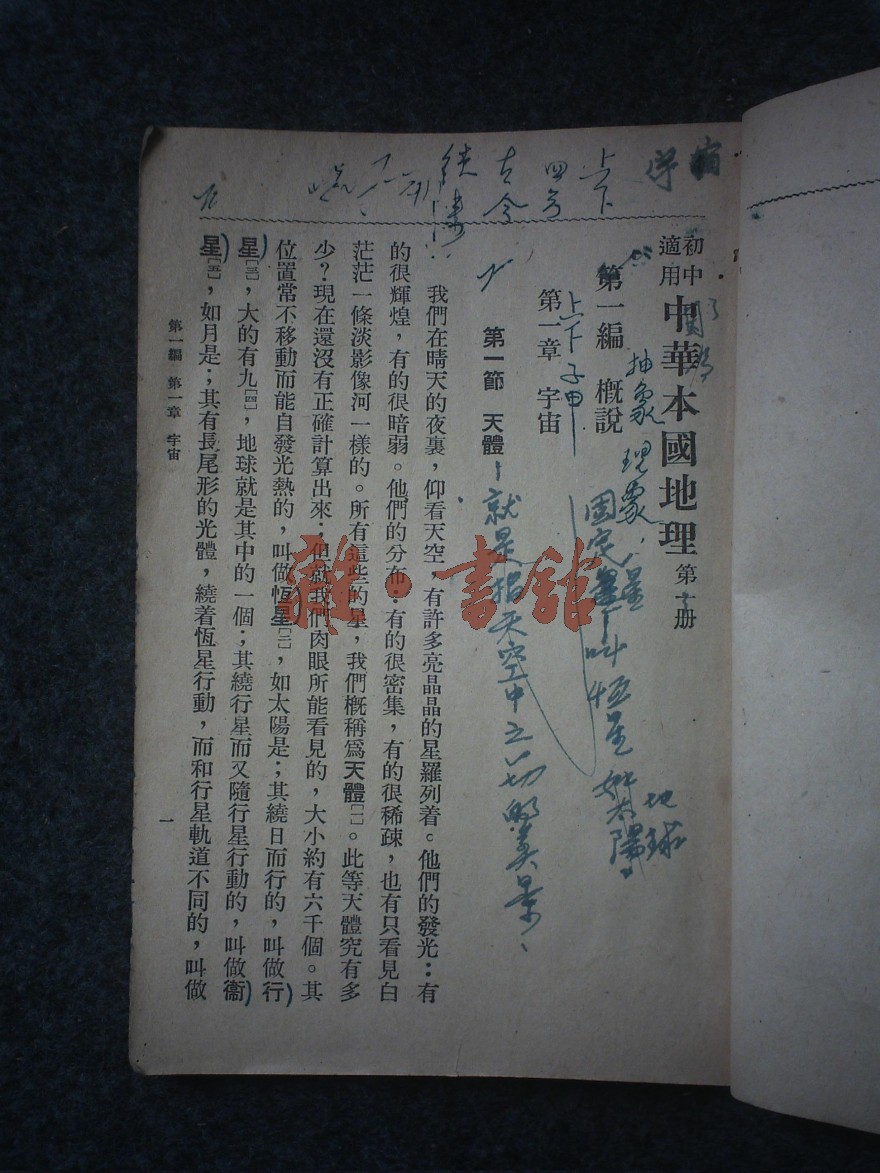 初中
適用
中華本國地理 第十册
第一編 概說
第一章 宇宙
第一節 天體
我們在晴天的夜裏，仰看天空，有許多亮晶晶的星羅列着。他們的發光：有
的很輝煌，有的很暗弱。他們的分布：有的很密集，有的很稀疎，也有只看見白
茫茫一條淡影像河一樣的。所有這些的星，我們概稱爲天體〔一〕。此等天體究有多
少？現在還沒有正確計算出來：但就我們肉眼所能看見的，大小約有六千個。其
位置常不移動而能自發光熱的，叫做恆星〔二〕，如太陽是；其繞日而行的，叫做行
星〔三〕，大的有九〔四〕，地球就是其中的一個；其繞行星而又隨行星行動的，叫做衞
星〔五〕，如月是；其有長尾形的光體，繞着恆星行動，而和行星軌道不同的，叫做
第一編 第一章 宇宙
一
宙
上下
四方
古今
抽象 現象
上下
就是指天空中之一切的美景
叫恆星 如太陽
地球
雜·書館